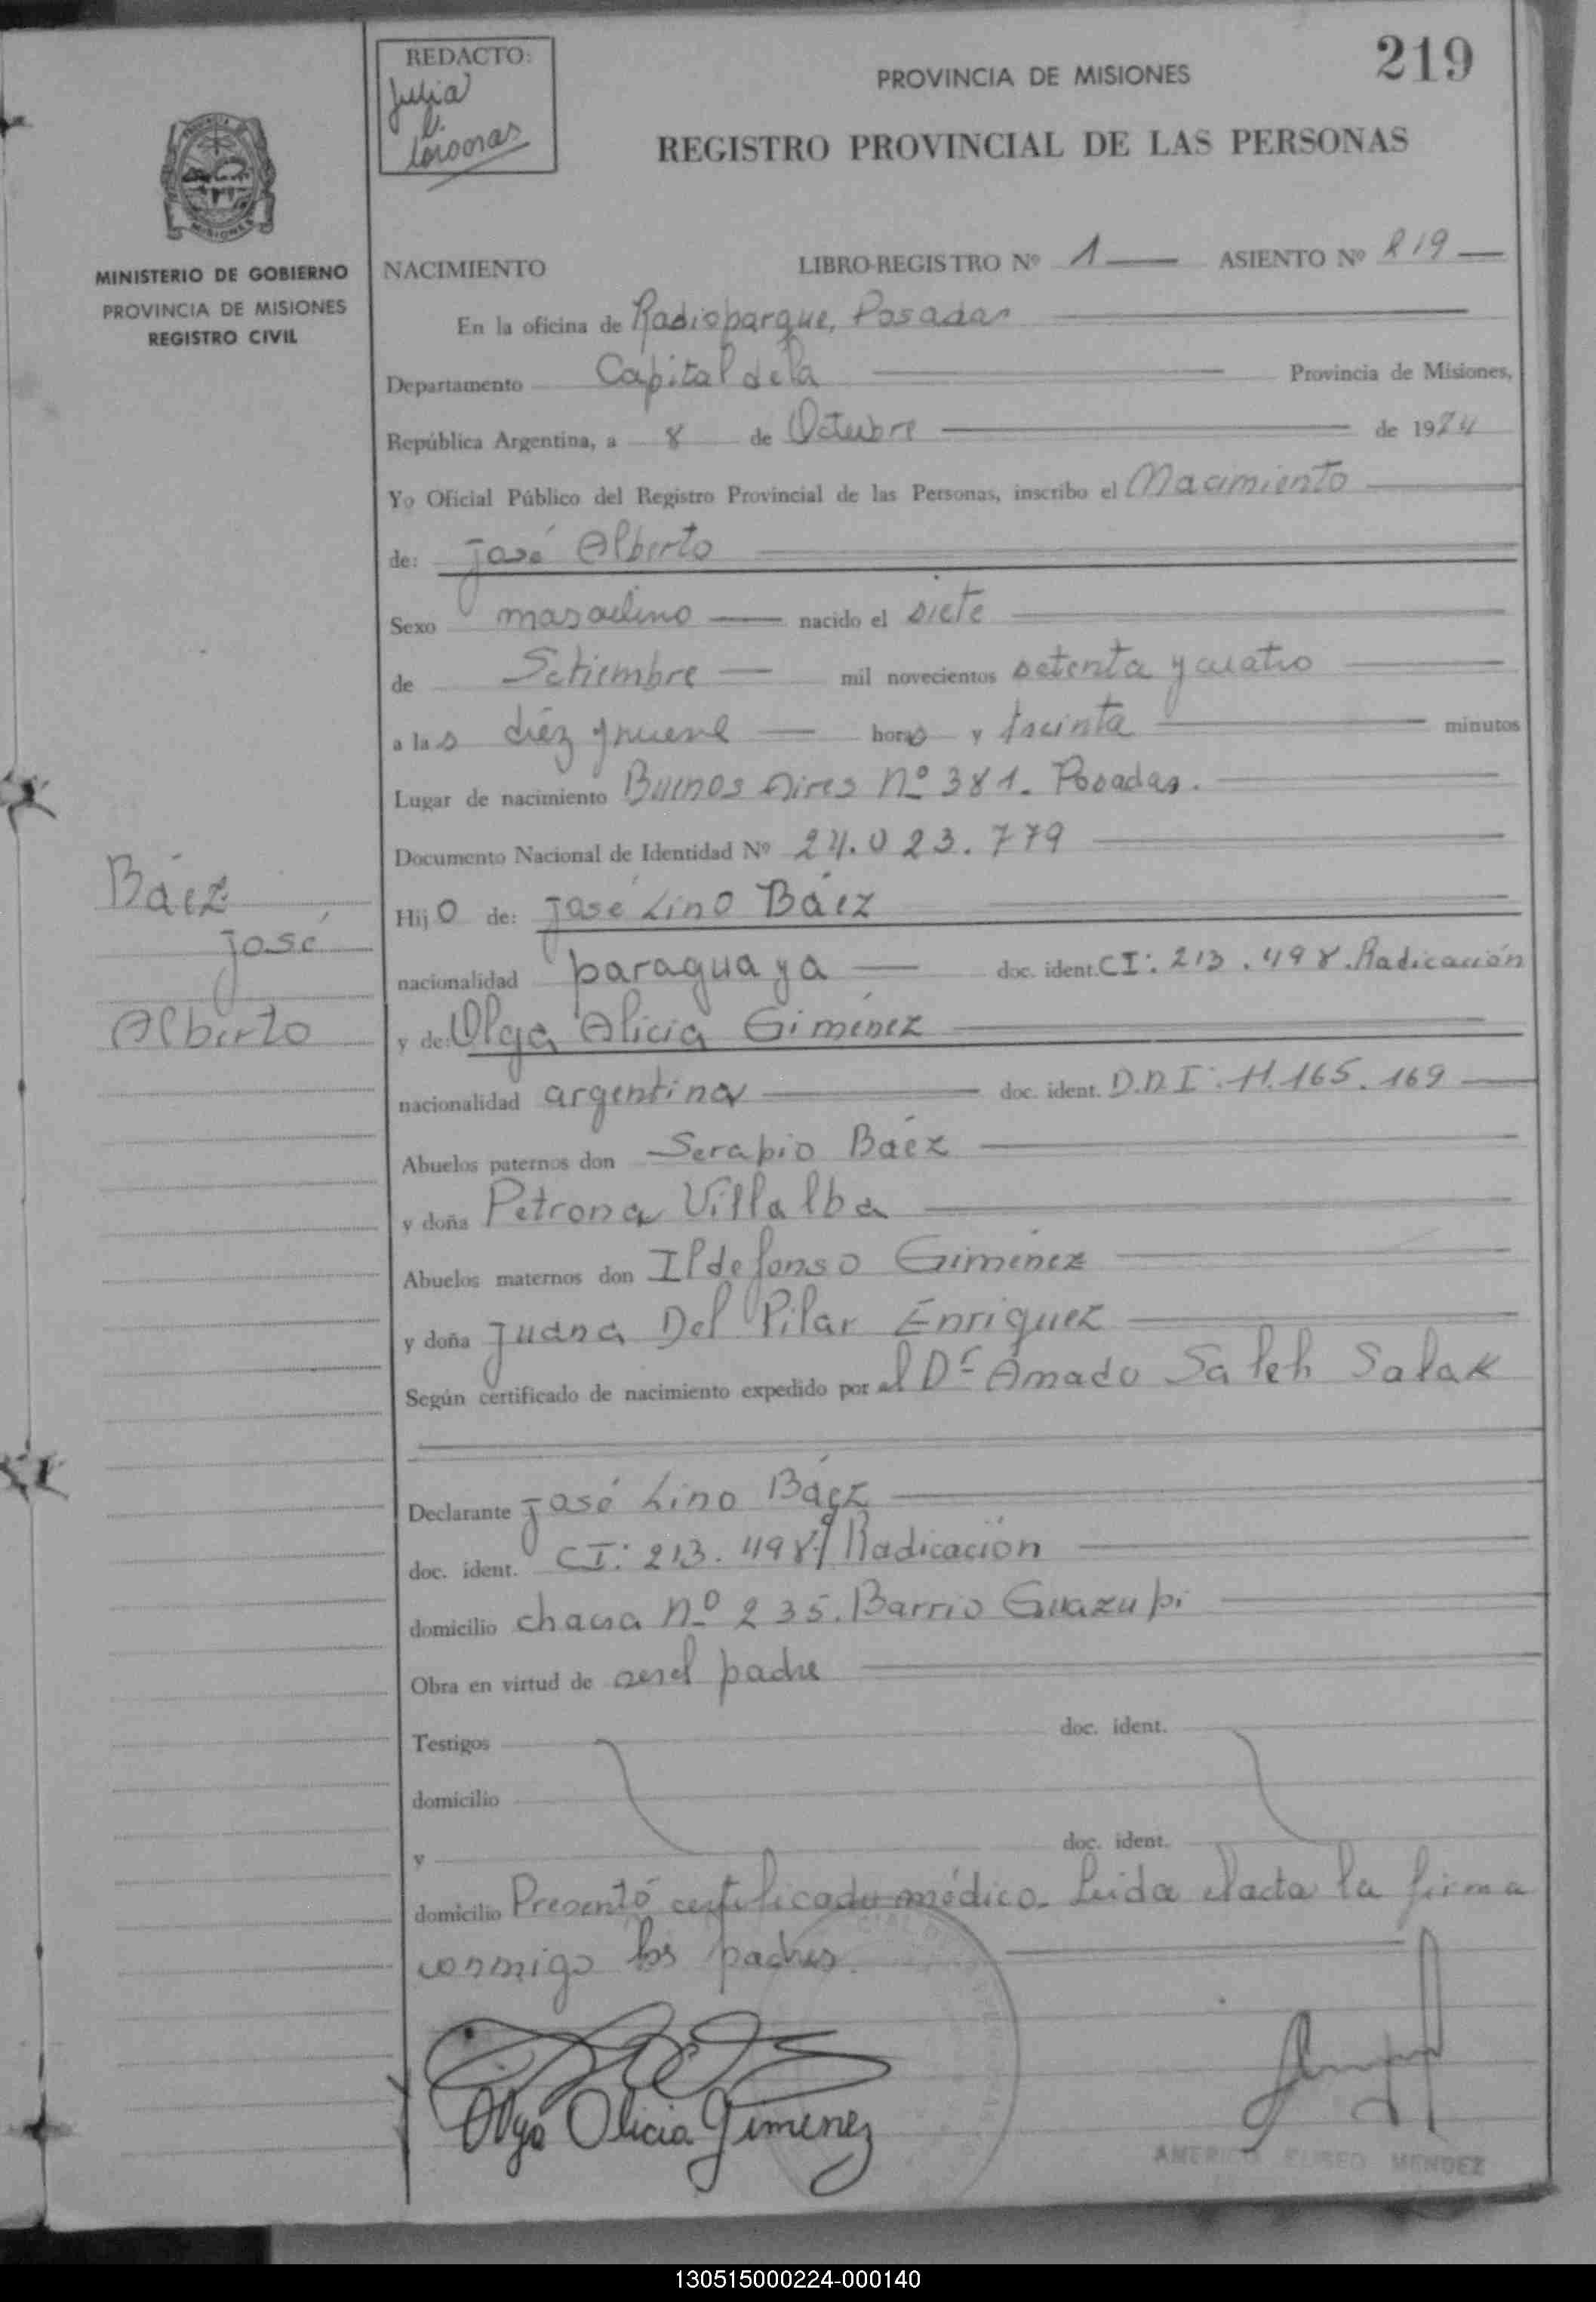 REDACTO:
Julia
219
PROVINCIA DE MISIONES
REGISTRO PROVINCIAL DE LAS PERSONAS
MISIONES
MINISTERIO DE GOBIERNO
PROVINCIA DE MISIONES
REGISTRO CIVIL
NACIMIENTO LIBRO-REGISTRO Nº 1 ASIENTO Nº 219
En la oficina de Radioparque, Posadas
Departamento Capital de la Provincia de Misiones,
República Argentina, a 8 de Octubre de 1974
Yo Oficial Público del Registro Provincial de las Personas, inscribo el Nacimiento
de: José Alberto
Sexo masculino nacido el siete
de Setiembre mil novecientos setenta y cuatro
a las diéz y nueve horas y treinta minutos
Lugar de nacimiento Buenos Aires Nº 381. Posadas.
Documento Nacional de Identidad Nº 24.023.779
Báez
José
Alberto
Hijo de: José Lino Báez
nacionalidad paraguaya doc. ident. CI: 213.498. Radicación
y de: Olga Alicia Giménez
nacionalidad argentina doc. ident. D.N.I: 11.165.169
Abuelos paternos don Serapio Báez
y doña Petrona Villalba
Abuelos maternos don Ildefonso Giménez
y doña Juana Del Pilar Enriquez
Según certificado de nacimiento expedido por el Dr Amado Saleh Salak
Declarante José Lino Báez
doc. ident. CI: 213.498 Radicación
domicilio chacra Nº 235. Barrio Guazupi
Obra en virtud de ser el padre
Testigos doc. ident.
domicilio
y doc. ident.
domicilio Presentó certificado médico. Leida el acta la firma
conmigo los padres.
Olga Alicia Gimenez
AMERICO ELISEO MENDEZ
130515000224-000140